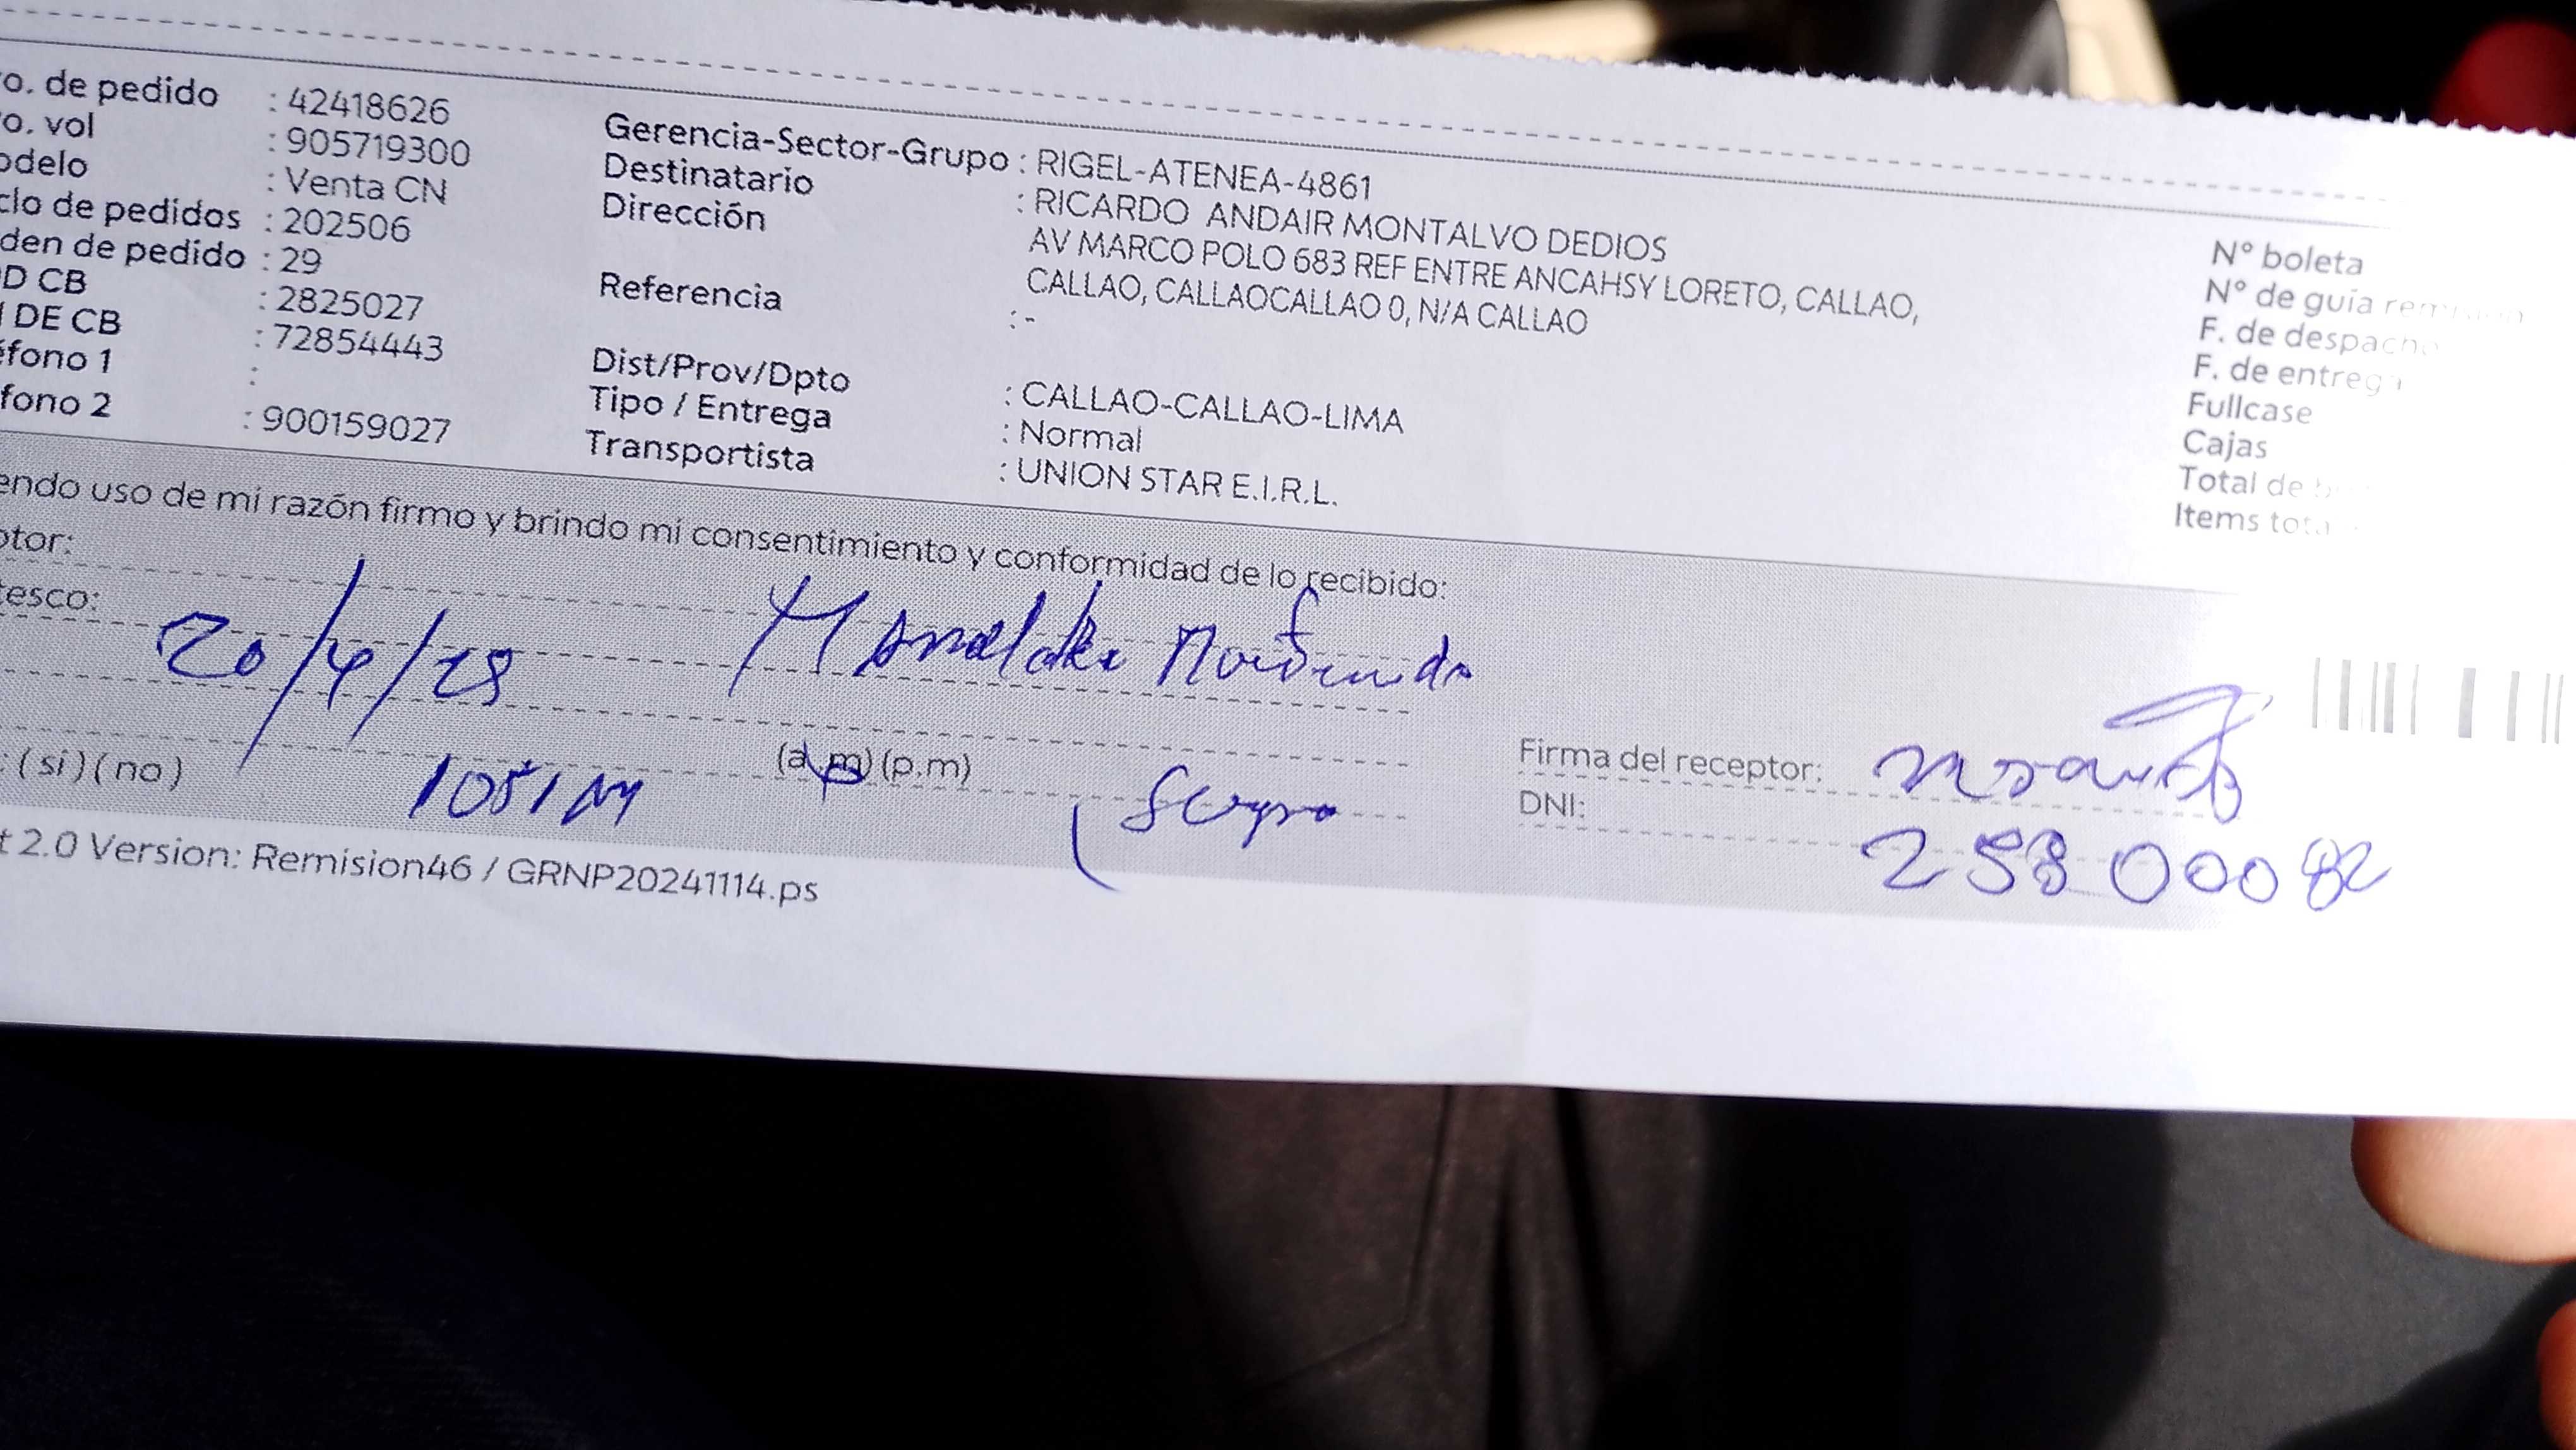 o. de pedido : 42418626
o. vol : 905719300
odelo : Venta CN
clo de pedidos : 202506
den de pedido : 29
D CB : 2825027
DE CB : 72854443
éfono 1 :
fono 2 : 900159027
Gerencia-Sector-Grupo : RIGEL-ATENEA-4861
Destinatario : RICARDO ANDAIR MONTALVO DEDIOS
Dirección AV MARCO POLO 683 REF ENTRE ANCAHSY LORETO, CALLAO,
CALLAO, CALLAOCALLAO 0, N/A CALLAO
Referencia : -
Dist/Prov/Dpto : CALLAO-CALLAO-LIMA
Tipo / Entrega : Normal
Transportista : UNION STAR E.I.R.L.
N° boleta
N° de guía remisión
F. de despacho
F. de entrega
Fullcase
Cajas
Total de
Items total
endo uso de mi razón firmo y brindo mi consentimiento y conformidad de lo recibido:
ptor:
tesco:
20/4/25
: (si) (no)
(a.m) (p.m)
Firma del receptor:
DNI:
25800082
t 2.0 Version: Remision46 / GRNP20241114.ps